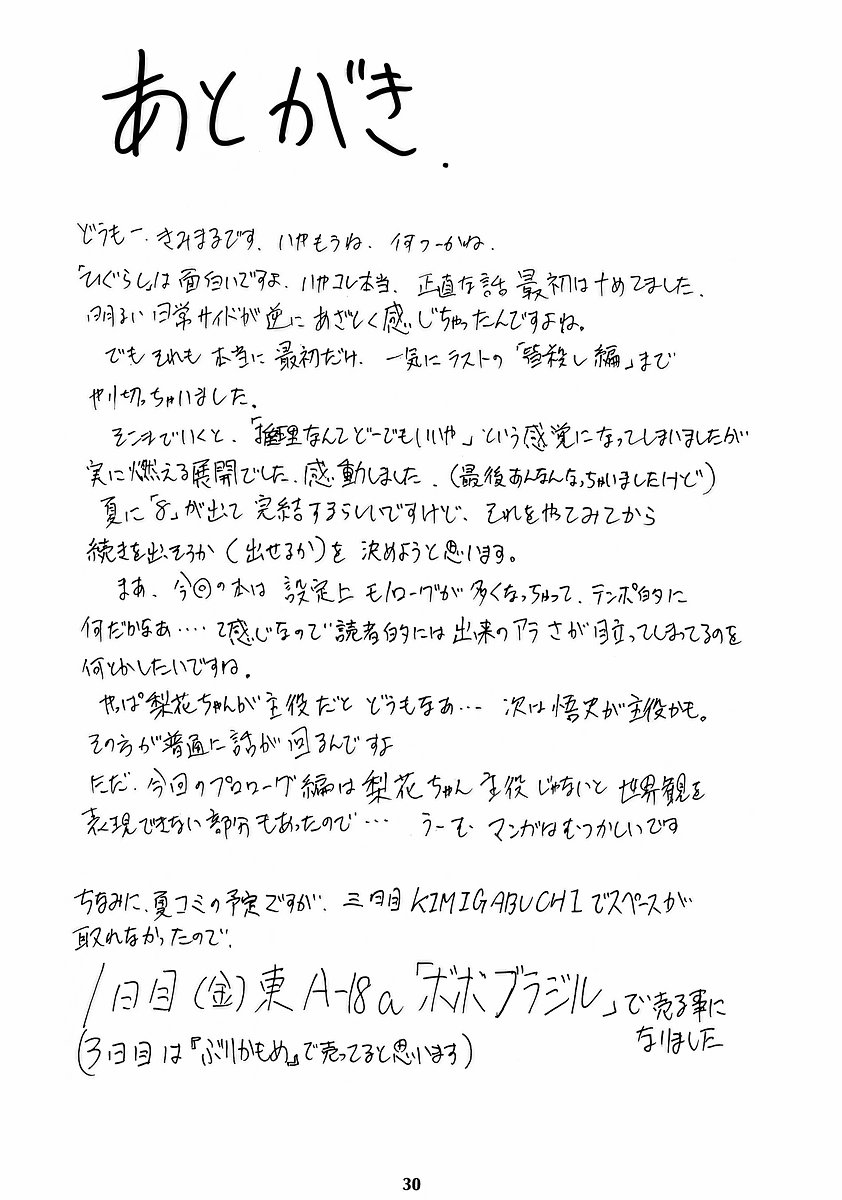 あとがき.
どうもー. きみまるです. いやもうね. 何つーかね.
「ひぐらし」は面白いですよ. いやコレ本当. 正直な話 最初はナめてました.
明るい日常サイドが逆にあざとく感じちゃったんですよね。
でもそれも本当に最初だけ. 一気にラストの「皆殺し編」まで
やり切っちゃいました.
そこまでいくと、「推理なんてどーでもいいや」という感覚になってしまいましたが
実に燃える展開でした. 感動しました. (最後あんなんなっちゃいましたけど)
夏に「8」が出て完結するらしいですけど、それをやってみてから
続きを出そうか(出せるか)を決めようと思います。
まあ、今回の本は設定上モノローグが多くなっちゃって、テンポ的に
何だかなあ‥‥って感じなので読者的には出来のアラさが目立ってしまってるのを
何とかしたいですね.
やっぱ梨花ちゃんが主役だとどうもなあ… 次は悟史が主役かも。
その方が普通に話が回るんですよ
ただ、今回のプロローグ編は梨花ちゃん主役じゃないと世界観を
表現できない部分もあったので… うーむ マンガはむつかしいです
ちなみに、夏コミの予定ですが、三日目KIMIGABUCHIでスペースが
取れなかったので、
1日目(金)東A-18a「ボボブラジル」で売る事に
なりました
(3日目は『ぶりかもめ』で売ってると思います)
30